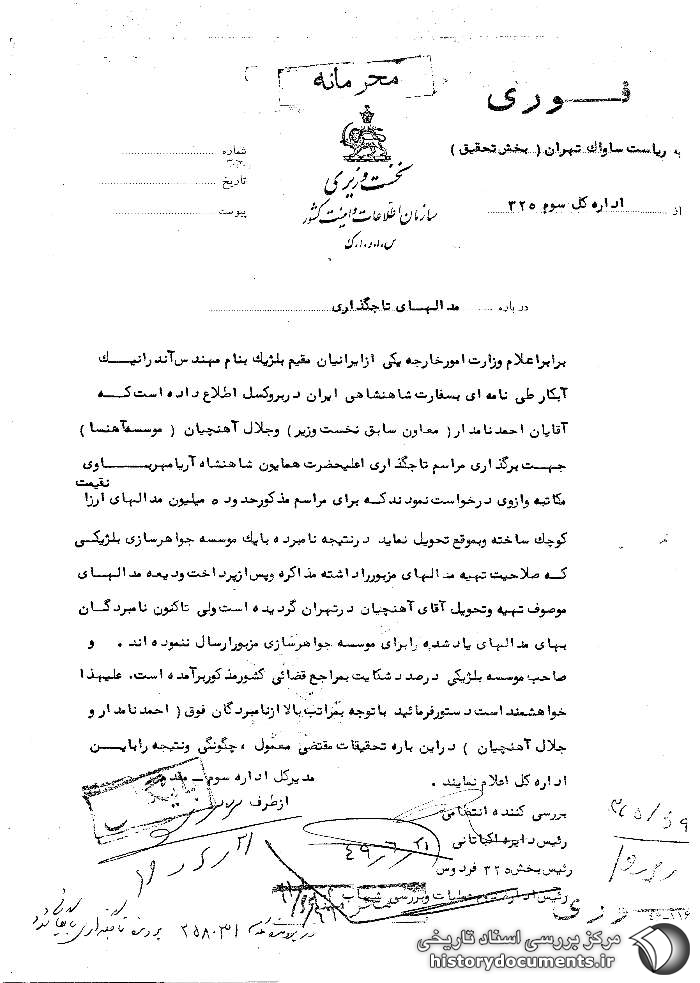 محرمانه
فــوری
به ریاست ساواك تهران ( بخش تحقیق )
از اداره کل سوم ۳۲۵
نخست وزیری
سازمان اطلاعات و امنیت کشور
س.ا.و.ا.ک
شماره
تاریخ
پیوست
درباره مدالهای تاجگذاری
برابر اعلام وزارت امور خارجه یکی از ایرانیان مقیم بلژیك بنام مهندس آندرانیــك
آبکار طی نامه ای بسفارت شاهنشاهی ایران در بروکسل اطلاع داده است کــه
آقایان احمد نامدار ( معاون سابق نخست وزیر ) و جلال آهنچیان ( موسسه آهنسا )
جهــت برگذاری مراسم تاجگذاری اعلیحضرت همایون شاهنشاه آریامهر بــا وی
مکاتبه و از وی درخواست نمودند که برای مراسم مذکور حدود ۵ میلیون مدالهای ارزانقیمت
کوچك ساخته و بموقع تحویل نماید در نتیجه نامبرده با یك موسسه جواهرسازی بلژیکــی
کــه صلاحیت تهیه مدالهای مزبور را داشته مذاکره و پس از پرداخت ودیعه مدالهــای
موصوف تهیه و تحویل آقای آهنچیان در تهران گردیده است ولی تاکنون نامبردگــان
بهای مدالهای یاد شده را برای موسسه جواهرسازی مزبور ارسال ننموده اند . و
صاحب موسسه بلژیکی در صدد شکایت بمراجع قضائی کشور مذکور برآمده است. علیهذا
خواهشمند است دستور فرمائید با توجه بمراتب بالا از نامبردگان فوق ( احمد نامدار و
جلال آهنچیان ) در این باره تحقیقات مقتضی معمول ، چگونگی و نتیجه را باین
اداره کل اعلام نمایند .
مدیر کل اداره سوم ــ مقدم
از طرف
بررسی کننده انتظامی
رئیس دایره اکباتانی
۴۹/۶/۲۱
رئیس بخش ۳۲۵ فردوس
فــوری
۲۵۸۰۳۱
مرکز بررسی اسناد تاریخی
historydocuments.ir